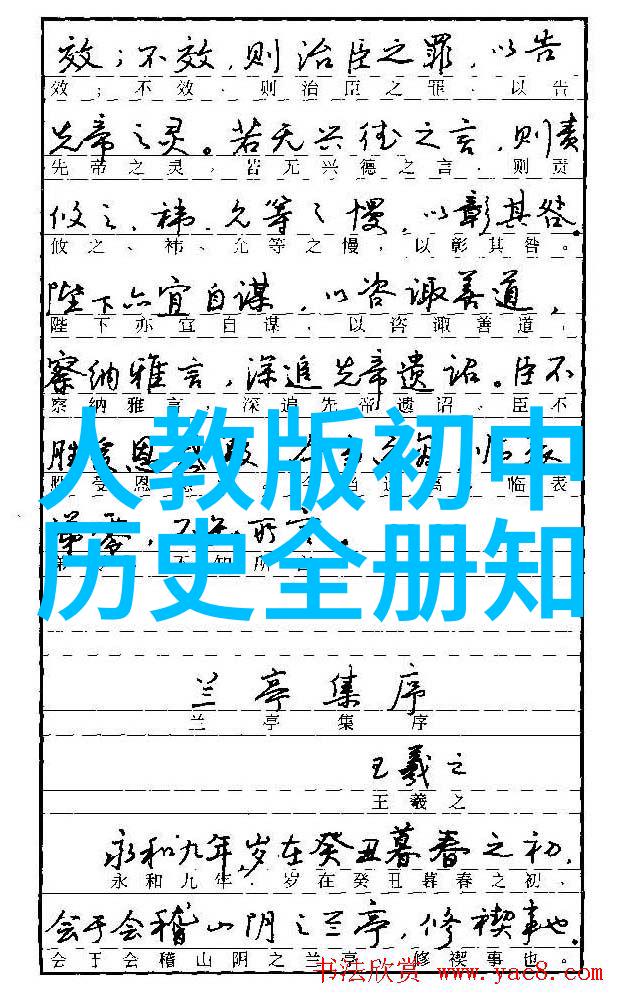 效；不效，则治臣之罪，以告
效；不效、则治臣之罪、以告
先帝之灵。若无兴德之言，则责
先帝之灵，若无兴德之言，则责
攸之、祎、允等之慢，以彰其咎。
攸之、祎、允等之慢，以彰其咎。
陛下亦宜自谋，以咨诹善道，
陛下亦宜自谋，以咨诹善道，
察纳雅言，深追先帝遗诏。臣不
察纳雅言，深追先帝遗诏。臣不
胜受恩
临表
人教版初中
历史全册知
兰亭集序
兰亭集序
王羲之
王羲之
永和九年，岁在癸丑暮春之初，
永和九年，岁在癸丑暮春之初、
会于会稽山阴之兰亭，修禊事也。
会于会稽山阴之兰亭，修禊事也。
书法欣赏 www.yac8.com